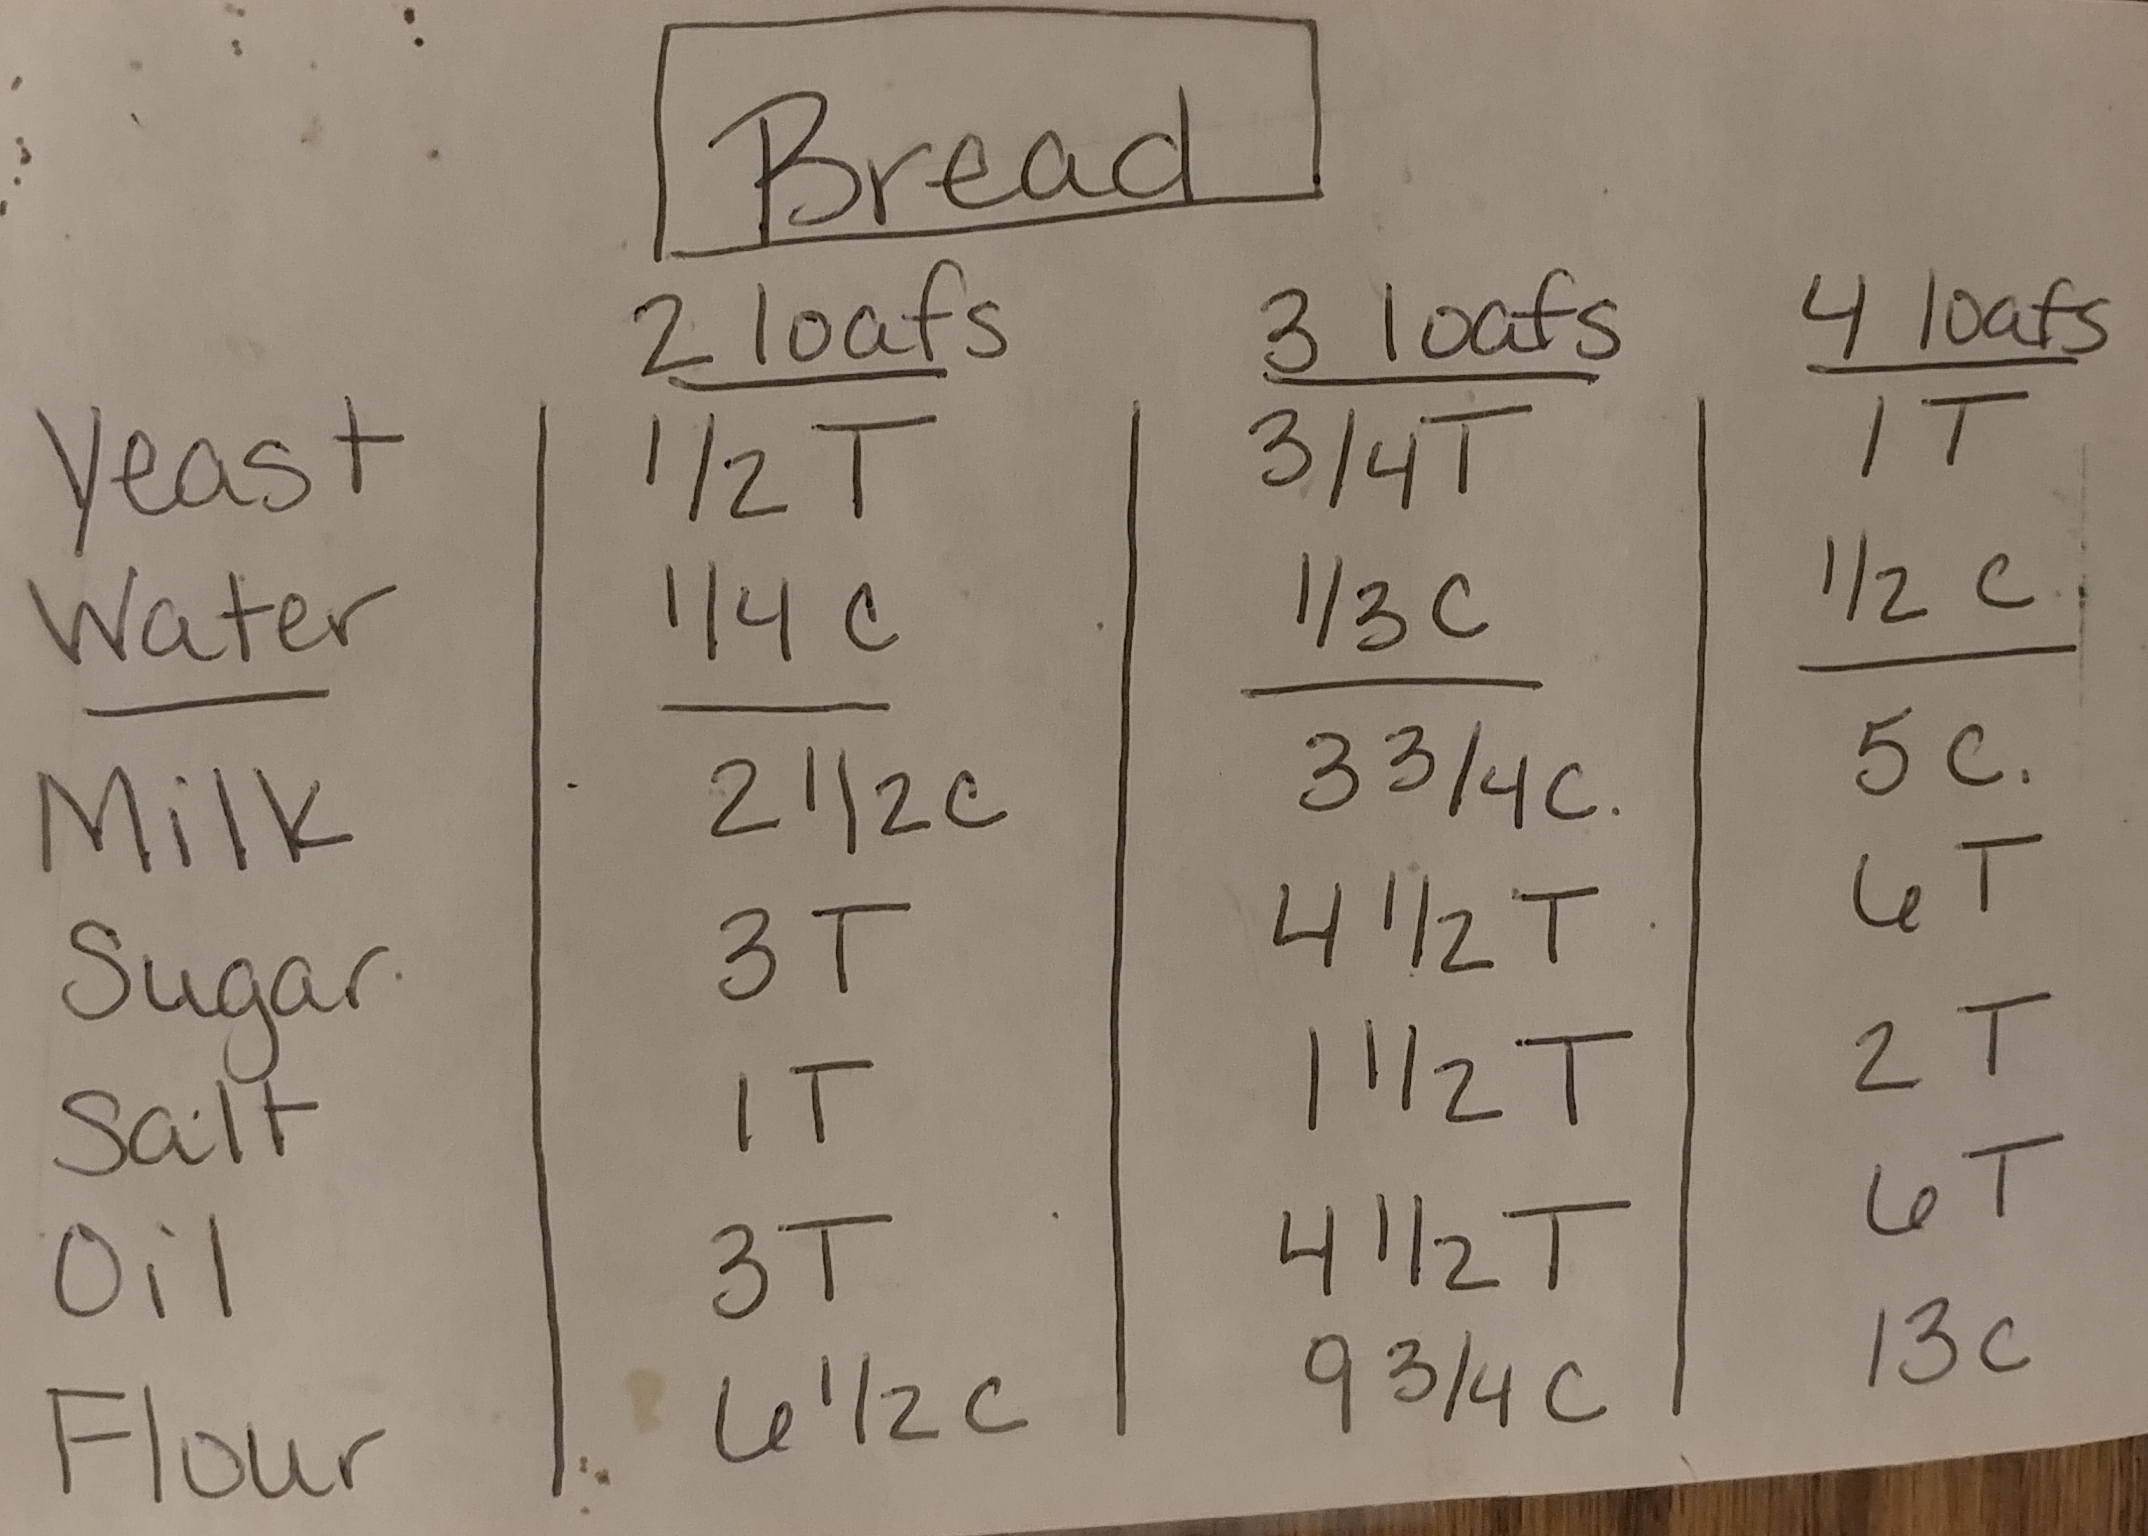 Bread
2 loafs 3 loafs 4 loafs
Yeast 1/2 T 3/4 T 1 T
Water 1/4 C 1/3 C 1/2 C
Milk 2 1/2 C 3 3/4 C. 5 C.
Sugar 3 T 4 1/2 T 6 T
Salt 1 T 1 1/2 T 2 T
Oil 3 T 4 1/2 T 6 T
Flour 6 1/2 C 9 3/4 C 13 C